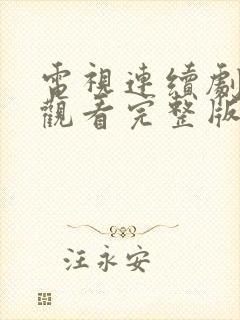 電視連續劇
觀看完整版
汪永安